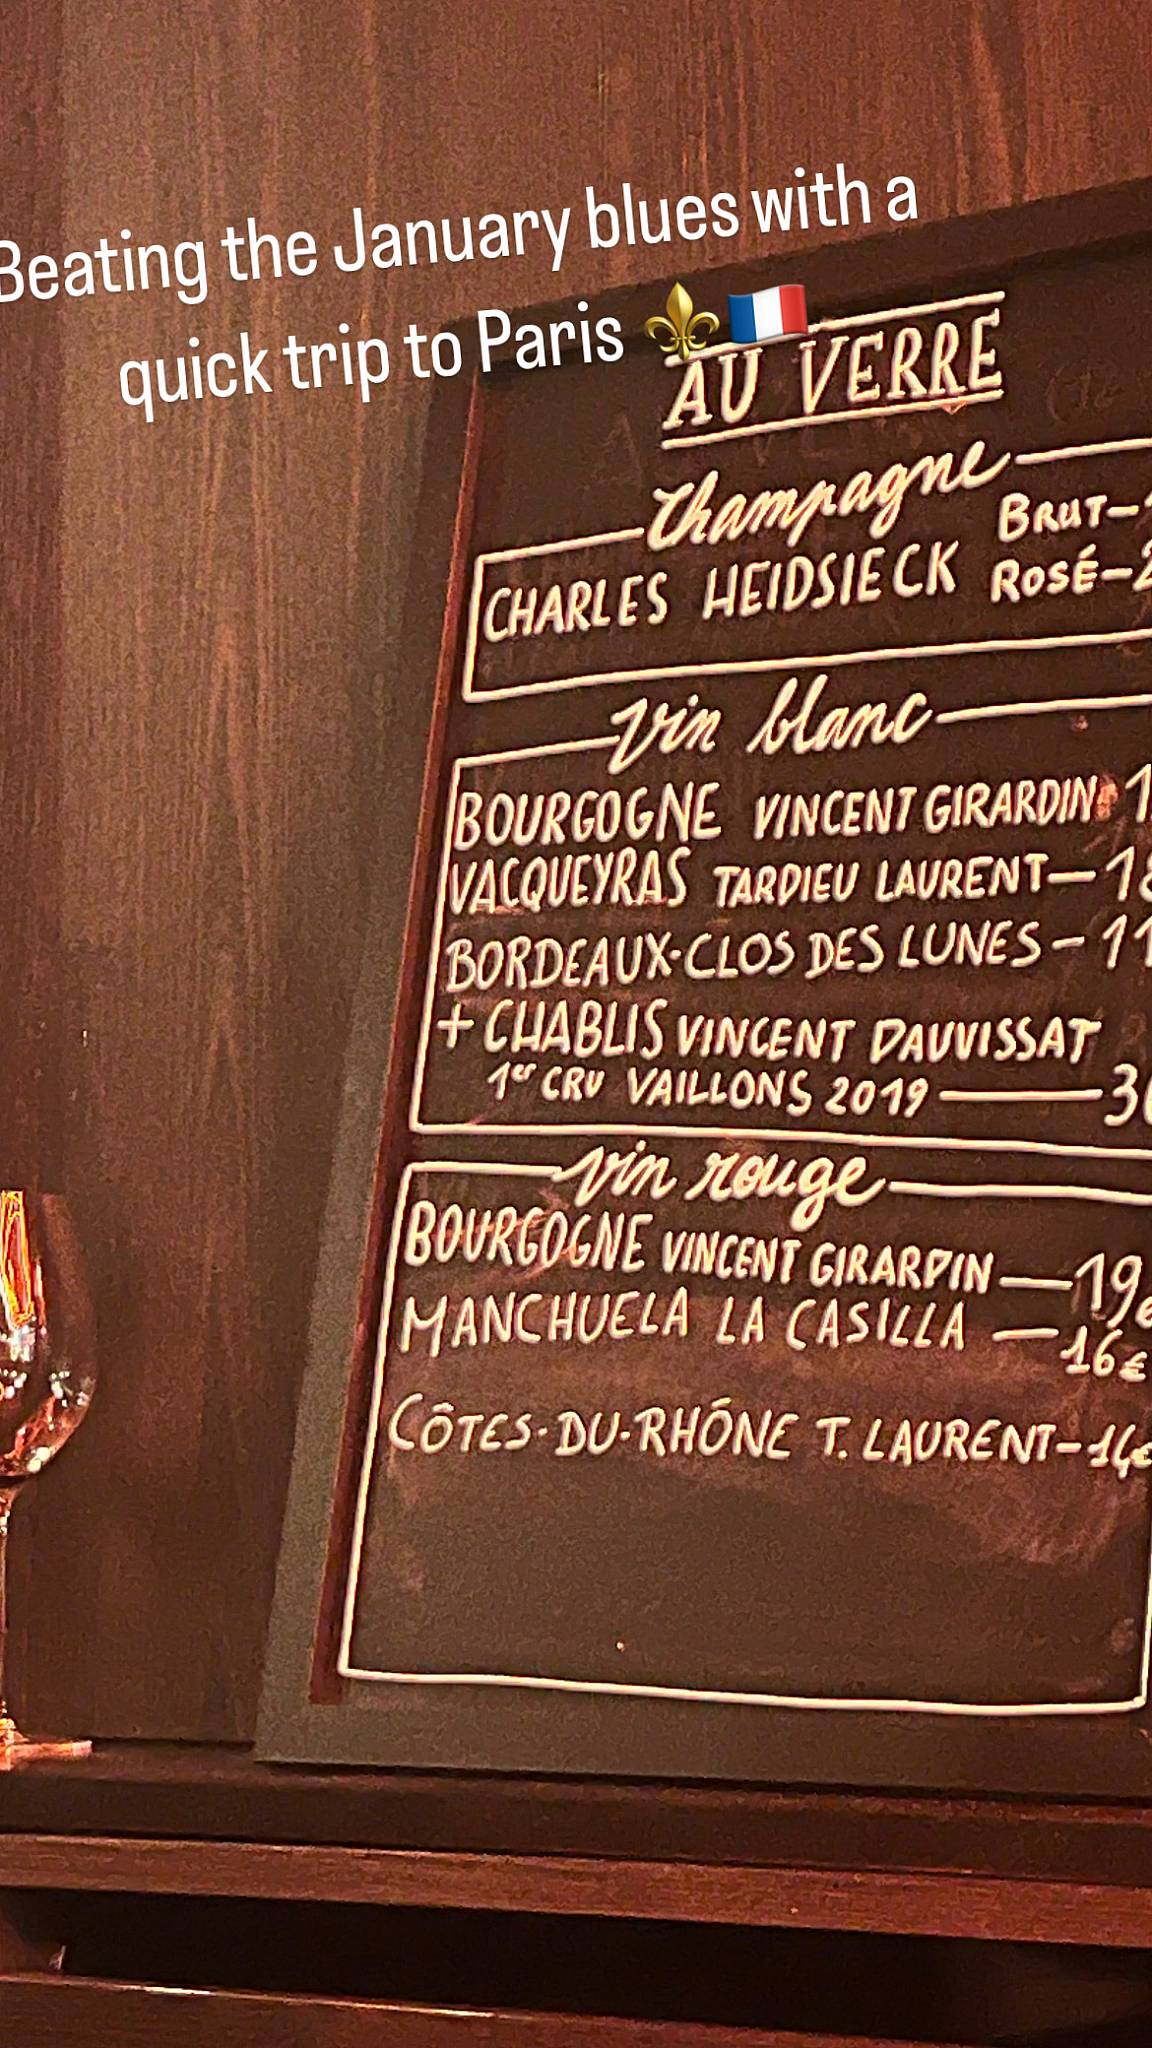 Beating the January blues with a
quick trip to Paris ⚜️🇫🇷
AU VERRE
Champagne
CHARLES HEIDSIECK BRUT-
ROSÉ-2
vin blanc
BOURGOGNE VINCENT GIRARDIN 1
VACQUEYRAS TARDIEU LAURENT-18
BORDEAUX-CLOS DES LUNES-11
+ CHABLIS VINCENT DAUVISSAT
1er CRU VAILLONS 2019-3
vin rouge
BOURGOGNE VINCENT GIRARDIN-19€
MANCHUELA LA CASILLA-16€
CÔTES-DU-RHÔNE T. LAURENT-14€